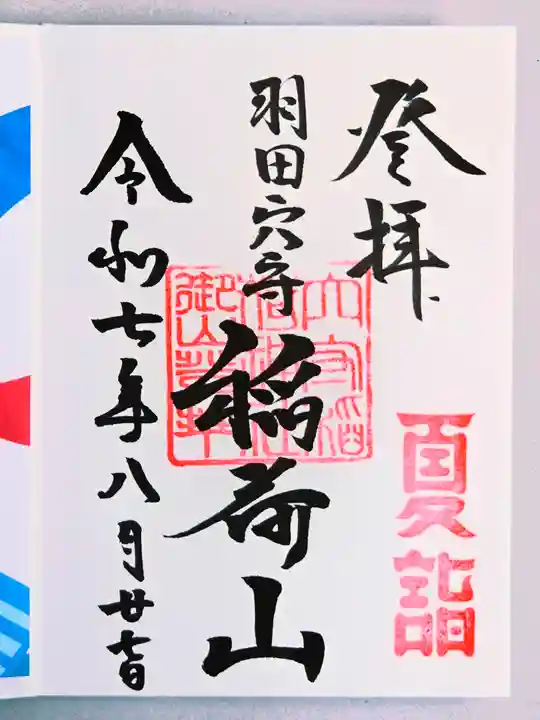 登拝
夏詣
羽田穴守
稲荷山
令和七年八月廿七日